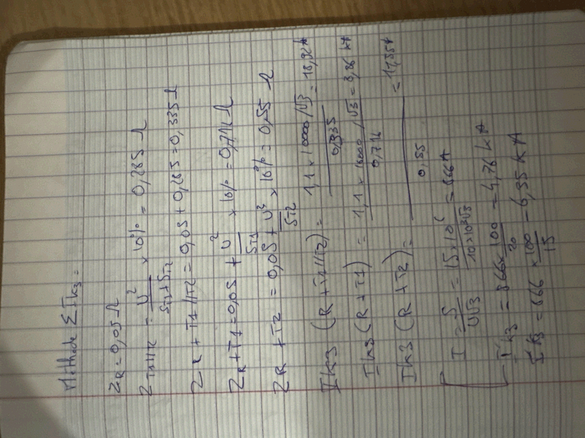 Méthode Σ Ik3 :
ZR = 0,05 Ω
ZT1//T2 = U² / (ST1 + ST2) × 10% = 0,285 Ω
ZR + T1//T2 = 0,05 + 0,285 = 0,335 Ω
ZR + T1 = 0,05 + U² / ST1 × 10% = 0,716 Ω
ZR + T2 = 0,05 + U² / ST2 × 10% = 0,55 Ω
Ik3 (R + T1//T2) = 1,1 × 10000/√3 / 0,335 = 18,92 kA
Ik3 (R + T1) = 1,1 × 10000/√3 / 0,716 = 8,86 kA
Ik3 (R + T2) = / 0,55 = 11,55 kA
I = S / U√3 = 15 × 10⁶ / 10 × 10³ √3 = 866 A
Ik3 = 866 × 100 / = 4,76 kA
Ik3 = 866 × 100 / 15 = 6,35 kA